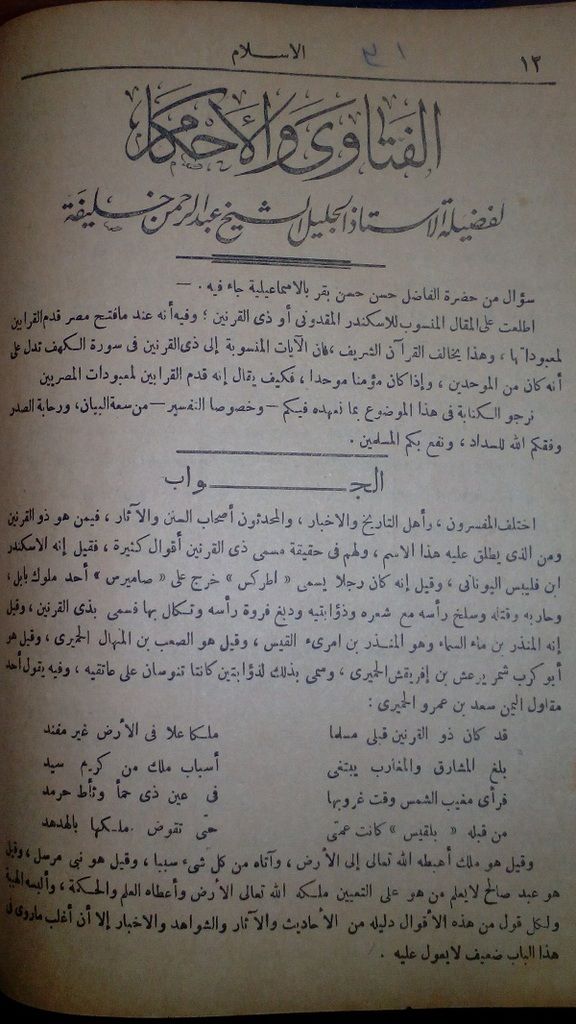 ١٢ الاسلام ٣١
الفتاوى والأحكام
لفضيلة الاستاذ الجليل الشيخ عبد الرحمن خليفة
سؤال من حضرة الفاضل حسن حسن بقر بالاسماعيلية جاء فيه . —
اطلعت على المقال المنسوب للاسكندر المقدونى أو ذى القرنين ؛ وفيه أنه عند مافتح مصر قدم القرابين
لمعبوداتها ، وهذا يخالف القرآن الشريف ، فان الآيات المنسوبة إلى ذى القرنين فى سورة الكهف تدل على
أنه كان من الموحدين ، وإذا كان مؤمنا موحدا ، فكيف يقال إنه قدم القرابين لمعبودات المصريين
نرجو الكتابة فى هذا الموضوع بما نعهده فيكم — وخصوصا التفسير — من سعة البيان، ورحابة الصدر
وفقكم الله للسداد ، ونفع بكم المسلمين .
الجـــواب
اختلف المفسرون ، وأهل التاريخ والاخبار ، والمحدثون أصحاب السنن والآثار ، فيمن هو ذو القرنين
ومن الذى يطلق عليه هذا الاسم ، ولهم فى حقيقة مسمى ذى القرنين أقوال كثيرة ، فقيل إنه الاسكندر
ابن فليبس اليونانى ، وقيل إنه كان رجلا يسمى « اطركس » خرج على « صاميرس » أحد ملوك بابل ،
وحاربه وقتله وسلخ رأسه مع شعره وذؤابتيه ودبغ فروة رأسه وتكال بها فسمى بذى القرنين ، وقيل
إنه المنذر بن ماء السماء وهو المنذر بن امرىء القيس ، وقيل هو الصعب بن المنهال الحميرى ، وقيل هو
أبو كرب شمر يرعش بن إفريقش الحميرى ، وسمى بذلك لذؤابتين كانتا تنوسان على عاتقيه ، وفيه يقول أحد
مقاول اليمن سعد بن عمرو الحميرى :
قد كان ذو القرنين قبلى مسلما ملكا علا فى الأرض غير مفند
بلغ المشارق والمغارب يبتغى أسباب ملك من كريم سيد
فرأى مغيب الشمس وقت غروبها فى عين ذى حمأ وثأط حرمد
من قبله « بلقيس » كانت عمتى حتى تقوض ملكها بالهدهد
وقيل هو ملك أهبطه الله تعالى إلى الأرض ، وآتاه من كل شىء سببا ، وقيل هو نبى مرسل ، وقيل
هو عبد صالح لايعلم من هو على التعيين ملكه الله تعالى الأرض وأعطاه العلم والحكمة ، وألبسه الهيبة
ولكل قول من هذه الأقوال دليله من الأحاديث والآثار والشواهد والاخبار إلا أن أغلب ماروى فى
هذا الباب ضعيف لايعول عليه .